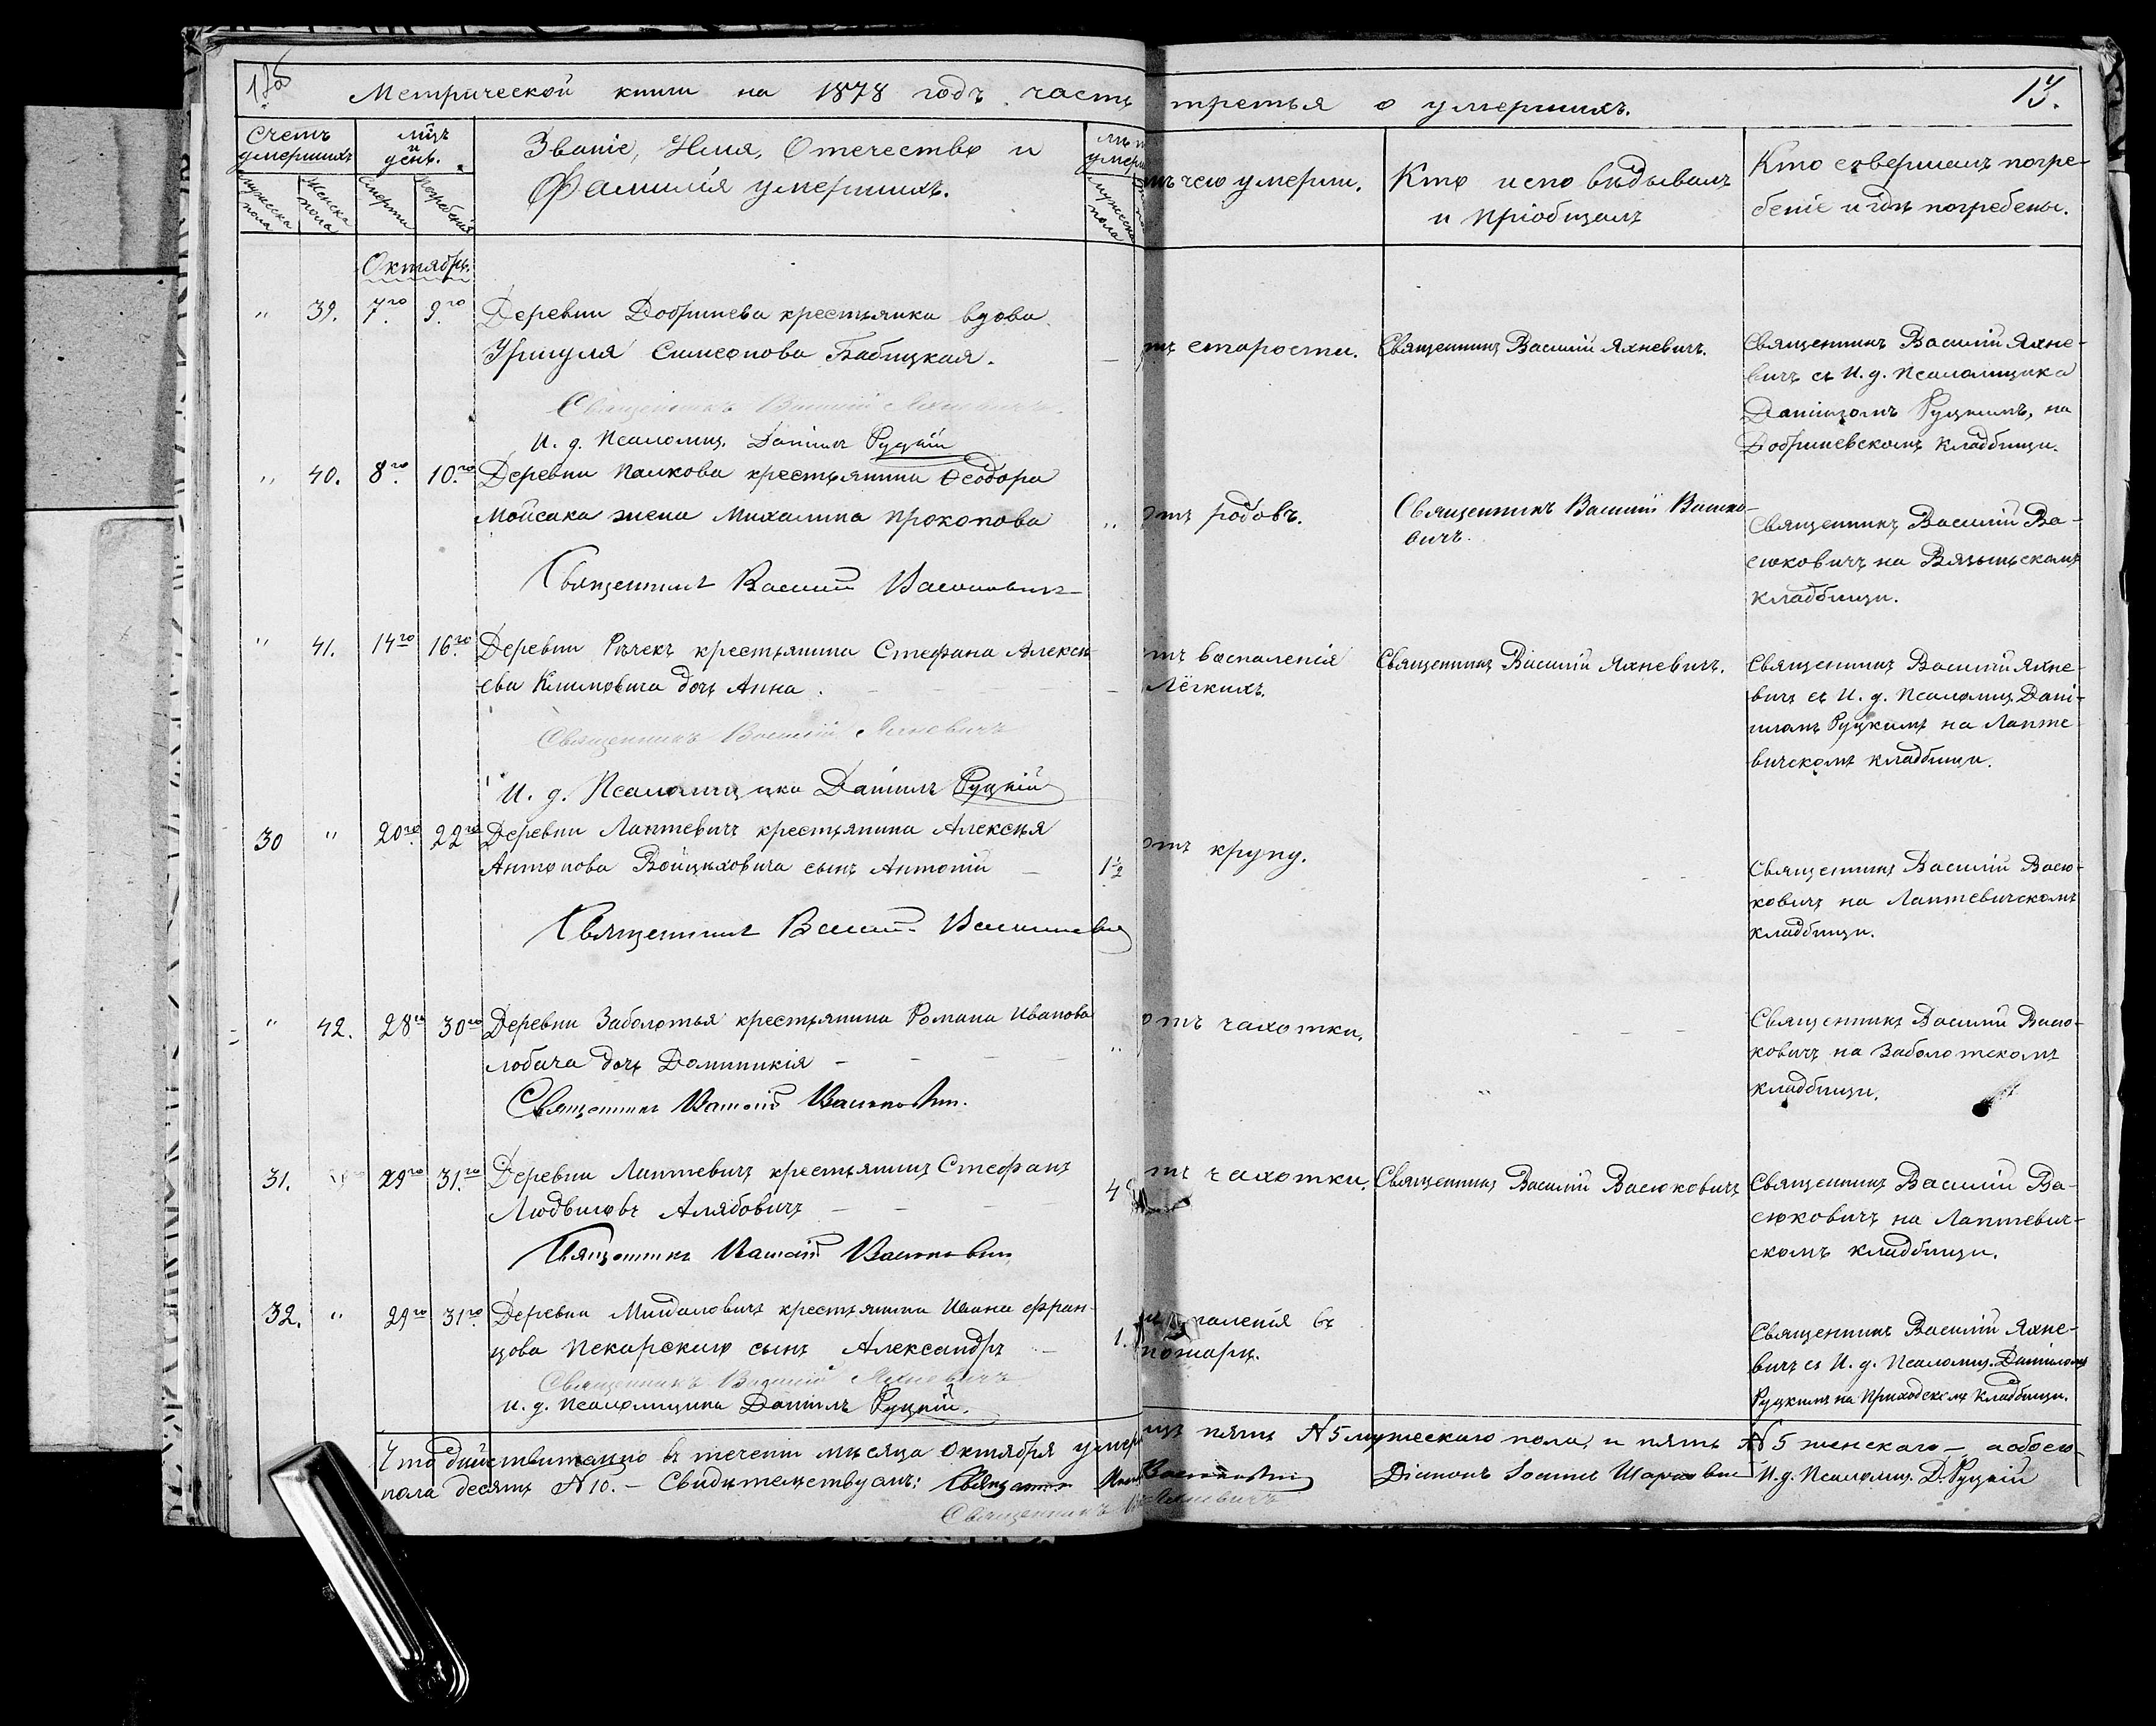 Метрической книги на 1878 годъ часть третья о умершихъ.
13.
Счетъ умершихъ
мѣсц. и день.
Званіе, Имя, Отечество и
Фамилія умершихъ.
чего умерли.
Кто исповѣдывалъ
и пріобщалъ
Кто совершалъ погре-
беніе и гдѣ погребены.
мужеска пола
Женска пола
смерти
погребенія
мужеска пола
Октябрь.
" 39. 7го 9го Деревни Добринева крестьянка вдова
Симеонова Бабицкая.
Священникъ Василій Яхневичъ
И. д. Псаломщ. Даніилъ Руцкій
старости.
Священникъ Василій Яхневичъ.
Священникъ Василій Яхне-
вичъ съ И. д. Псаломщика
Даніиломъ Руцкимъ, на
Добриневскомъ кладбищѣ.
" 40. 8го 10го Деревни Палкова крестьянина Ѳеодора
Мойсака жена Михалина Прокопова "
Священникъ Василій Васюковичъ
отъ родовъ.
Священникъ Василій Васюко-
вичъ.
Священникъ Василій Ва-
сюковичъ на
кладбищѣ.
" 41. 14го 16го Деревни Рѣчекъ крестьянина Стефана Алексѣ-
ева Климовича дочь Анна.
Священникъ Василій Яхневичъ
И. д. Псаломщика Даніилъ Руцкій
воспаленія
лёгкихъ.
Священникъ Василій Яхневичъ.
Священникъ Василій Яхне-
вичъ съ И. д. Псаломщ. Дані-
иломъ Руцкимъ на Лапте-
вичскомъ кладбищѣ.
30 " 20го 22го Деревни Лаптевичъ крестьянина Алексѣя
Антонова Войцѣховича сынъ Антоній 1½
Священникъ Василій Васюковичъ
отъ крупу.
Священникъ Василій Васю-
ковичъ на Лаптевичскомъ
кладбищѣ.
" 42. 28го 30го Деревни Заболотья крестьянина Романа Иванова
Лобача дочь Доминикія "
Священникъ Василій Васюковичъ.
отъ чахотки.
Священникъ Василій Васю-
ковичъ на Заболотскомъ
кладбищѣ.
31. 29го 31го Деревни Лаптевичъ крестьянинъ Стефанъ
Людвиговъ Алябовичъ
Священникъ Василій Васюковичъ
чахотки.
Священникъ Василій Васюковичъ
Священникъ Василій Ва-
сюковичъ на Лаптевич-
скомъ кладбищѣ.
32. " 29го 31го Деревни Миндаловичъ крестьянина Ивана Фран-
цова Пекарскаго сынъ Александръ 1.
Священникъ Василій Яхневичъ
И. д. Псаломщика Даніилъ Руцкій.
въ
пожарѣ.
Священникъ Василій Яхне-
вичъ съ И. д. Псаломщ. Даніиломъ
Руцкимъ на Приходскомъ кладбищѣ.
Что дѣйствительно въ теченіи мѣсяца Октября пять № 5 мужескаго пола, и пять № 5 женскаго – а обоего
пола десять № 10. – Свидѣтельствуемъ: Священникъ Васюковичъ Діаконъ И. д. Псаломщ. Д. Руцкій
Священникъ Яхневичъ